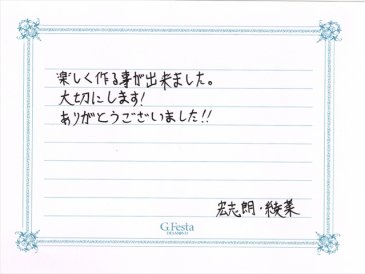 楽しく作る事が出来ました。
大切にします!
ありがとうございました!!
宏志朗・綾菜
G.Festa